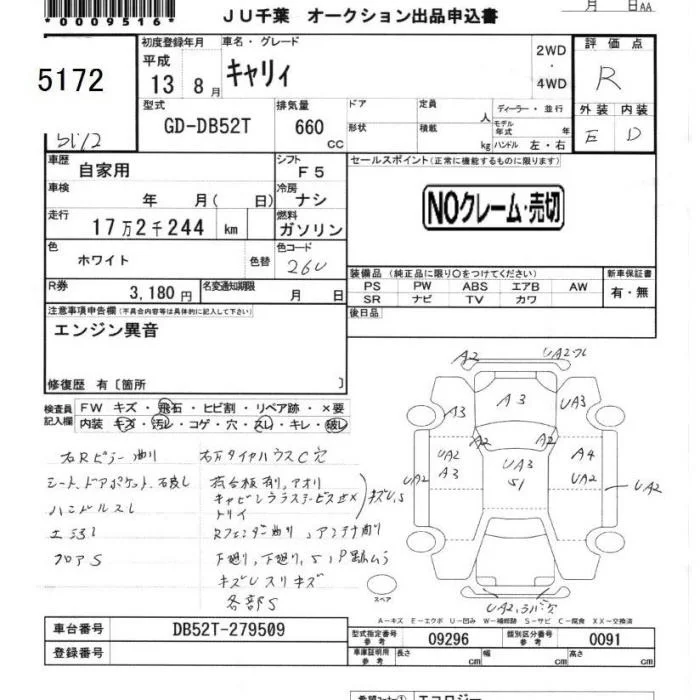 *0009516*
JU千葉 オークション出品申込書
月 日AA
5172
5172
初度登録年月
平成
13 8月
車名・グレード
キャリィ
2WD
・
4WD
評価点
R
外装 内装
E D
型式
GD-DB52T
排気量
660 CC
ドア
形状
定員 人
積載 kg
ディーラー・並行
モデル年式 年
ハンドル 左・右
車歴
自家用
シフト
F5
車検
年 月( 日)
冷房
ナシ
走行
17万2千244 km
燃料
ガソリン
色
ホワイト
色替
色コード
26U
R券
3,180円
名変通知期限
月 日
セールスポイント(正常に機能するものに限ります)
NOクレーム・売切
装備品 (純正品に限り○をつけてください)
PS PW ABS エアB AW
SR ナビ TV カワ
新車保証書
有・無
後日品
注意事項申告欄(不具合内容等は具体的に記入して下さい)
エンジン異音
修復歴 有〔箇所 〕
検査員
記入欄
FW キズ・飛石・ヒビ割・リペア跡・×要
内装 キズ・汚レ・コゲ・穴・スレ・キレ・破レ
右Rピラー曲り
ハンドルスレ
フロアS
荷台板有り,アオリ
キズU,S
アンテナ曲り
キズUスリキズ
各部S
A2
A3
A3
UA3
A2
A2
UA2
UA2
A3
UA3
S1
A4
UA2
UA2
スペア
A-キズ E-エクボ U-凹み W-補修跡 S-サビ C-腐食 XX-交換済
車台番号
DB52T-279509
登録番号
型式指定番号
参考
09296
類別区分番号
参考
0091
車庫証明用
参考
長さ cm
幅 cm
高さ cm
エコロジー